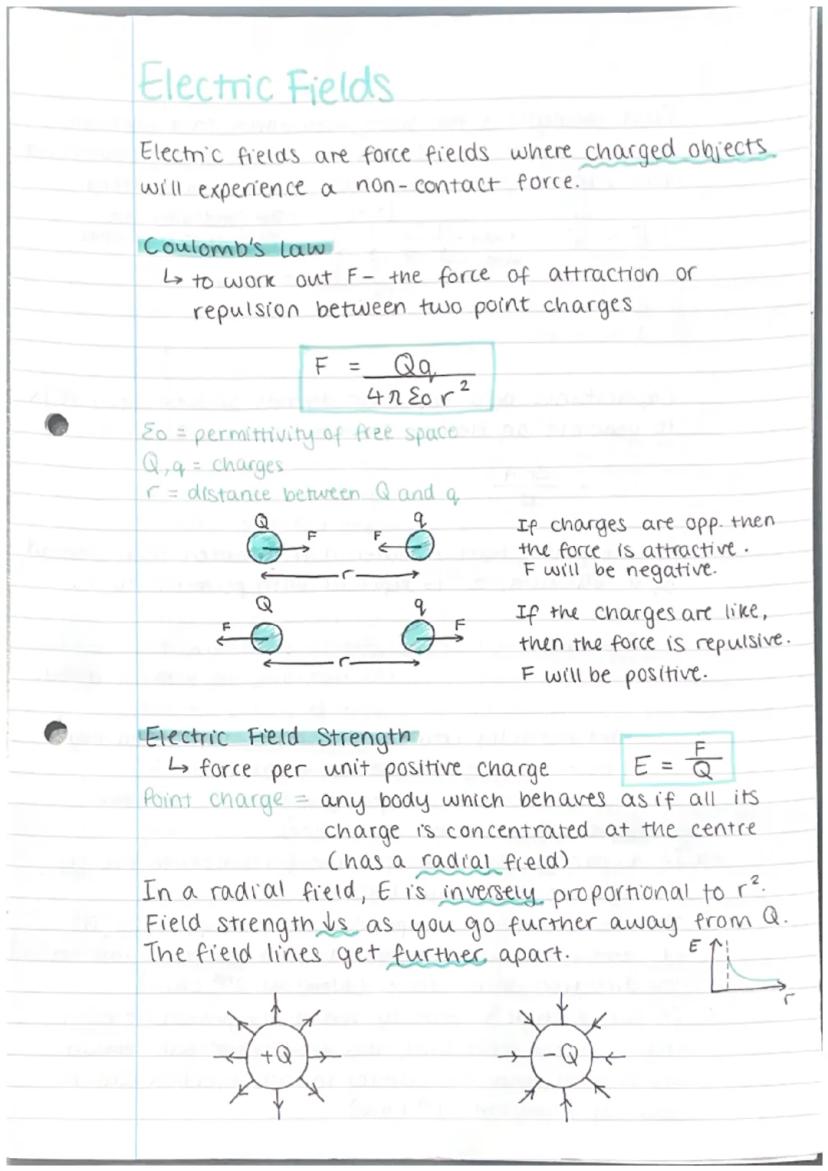 Electric Fields
Electric fields are force fields where charged objects
will experience a non-contact force.
Coulomb's Law
↳ to work out F- the force of attraction or
repulsion between two point charges
F = Qq / 4πε₀r²
ε₀ = permittivity of free space
Q,q = charges
r = distance between Q and q
Q q
F F
r
If charges are opp. then
the force is attractive.
F will be negative.
Q q
F F
r
If the charges are like,
then the force is repulsive.
F will be positive.
Electric Field Strength
↳ force per unit positive charge
E = F / Q
Point charge = any body which behaves as if all its
charge is concentrated at the centre
(has a radial field)
In a radial field, E is inversely proportional to r².
Field strength ↓s as you go further away from Q.
The field lines get further apart.
E
r
+Q
-Q